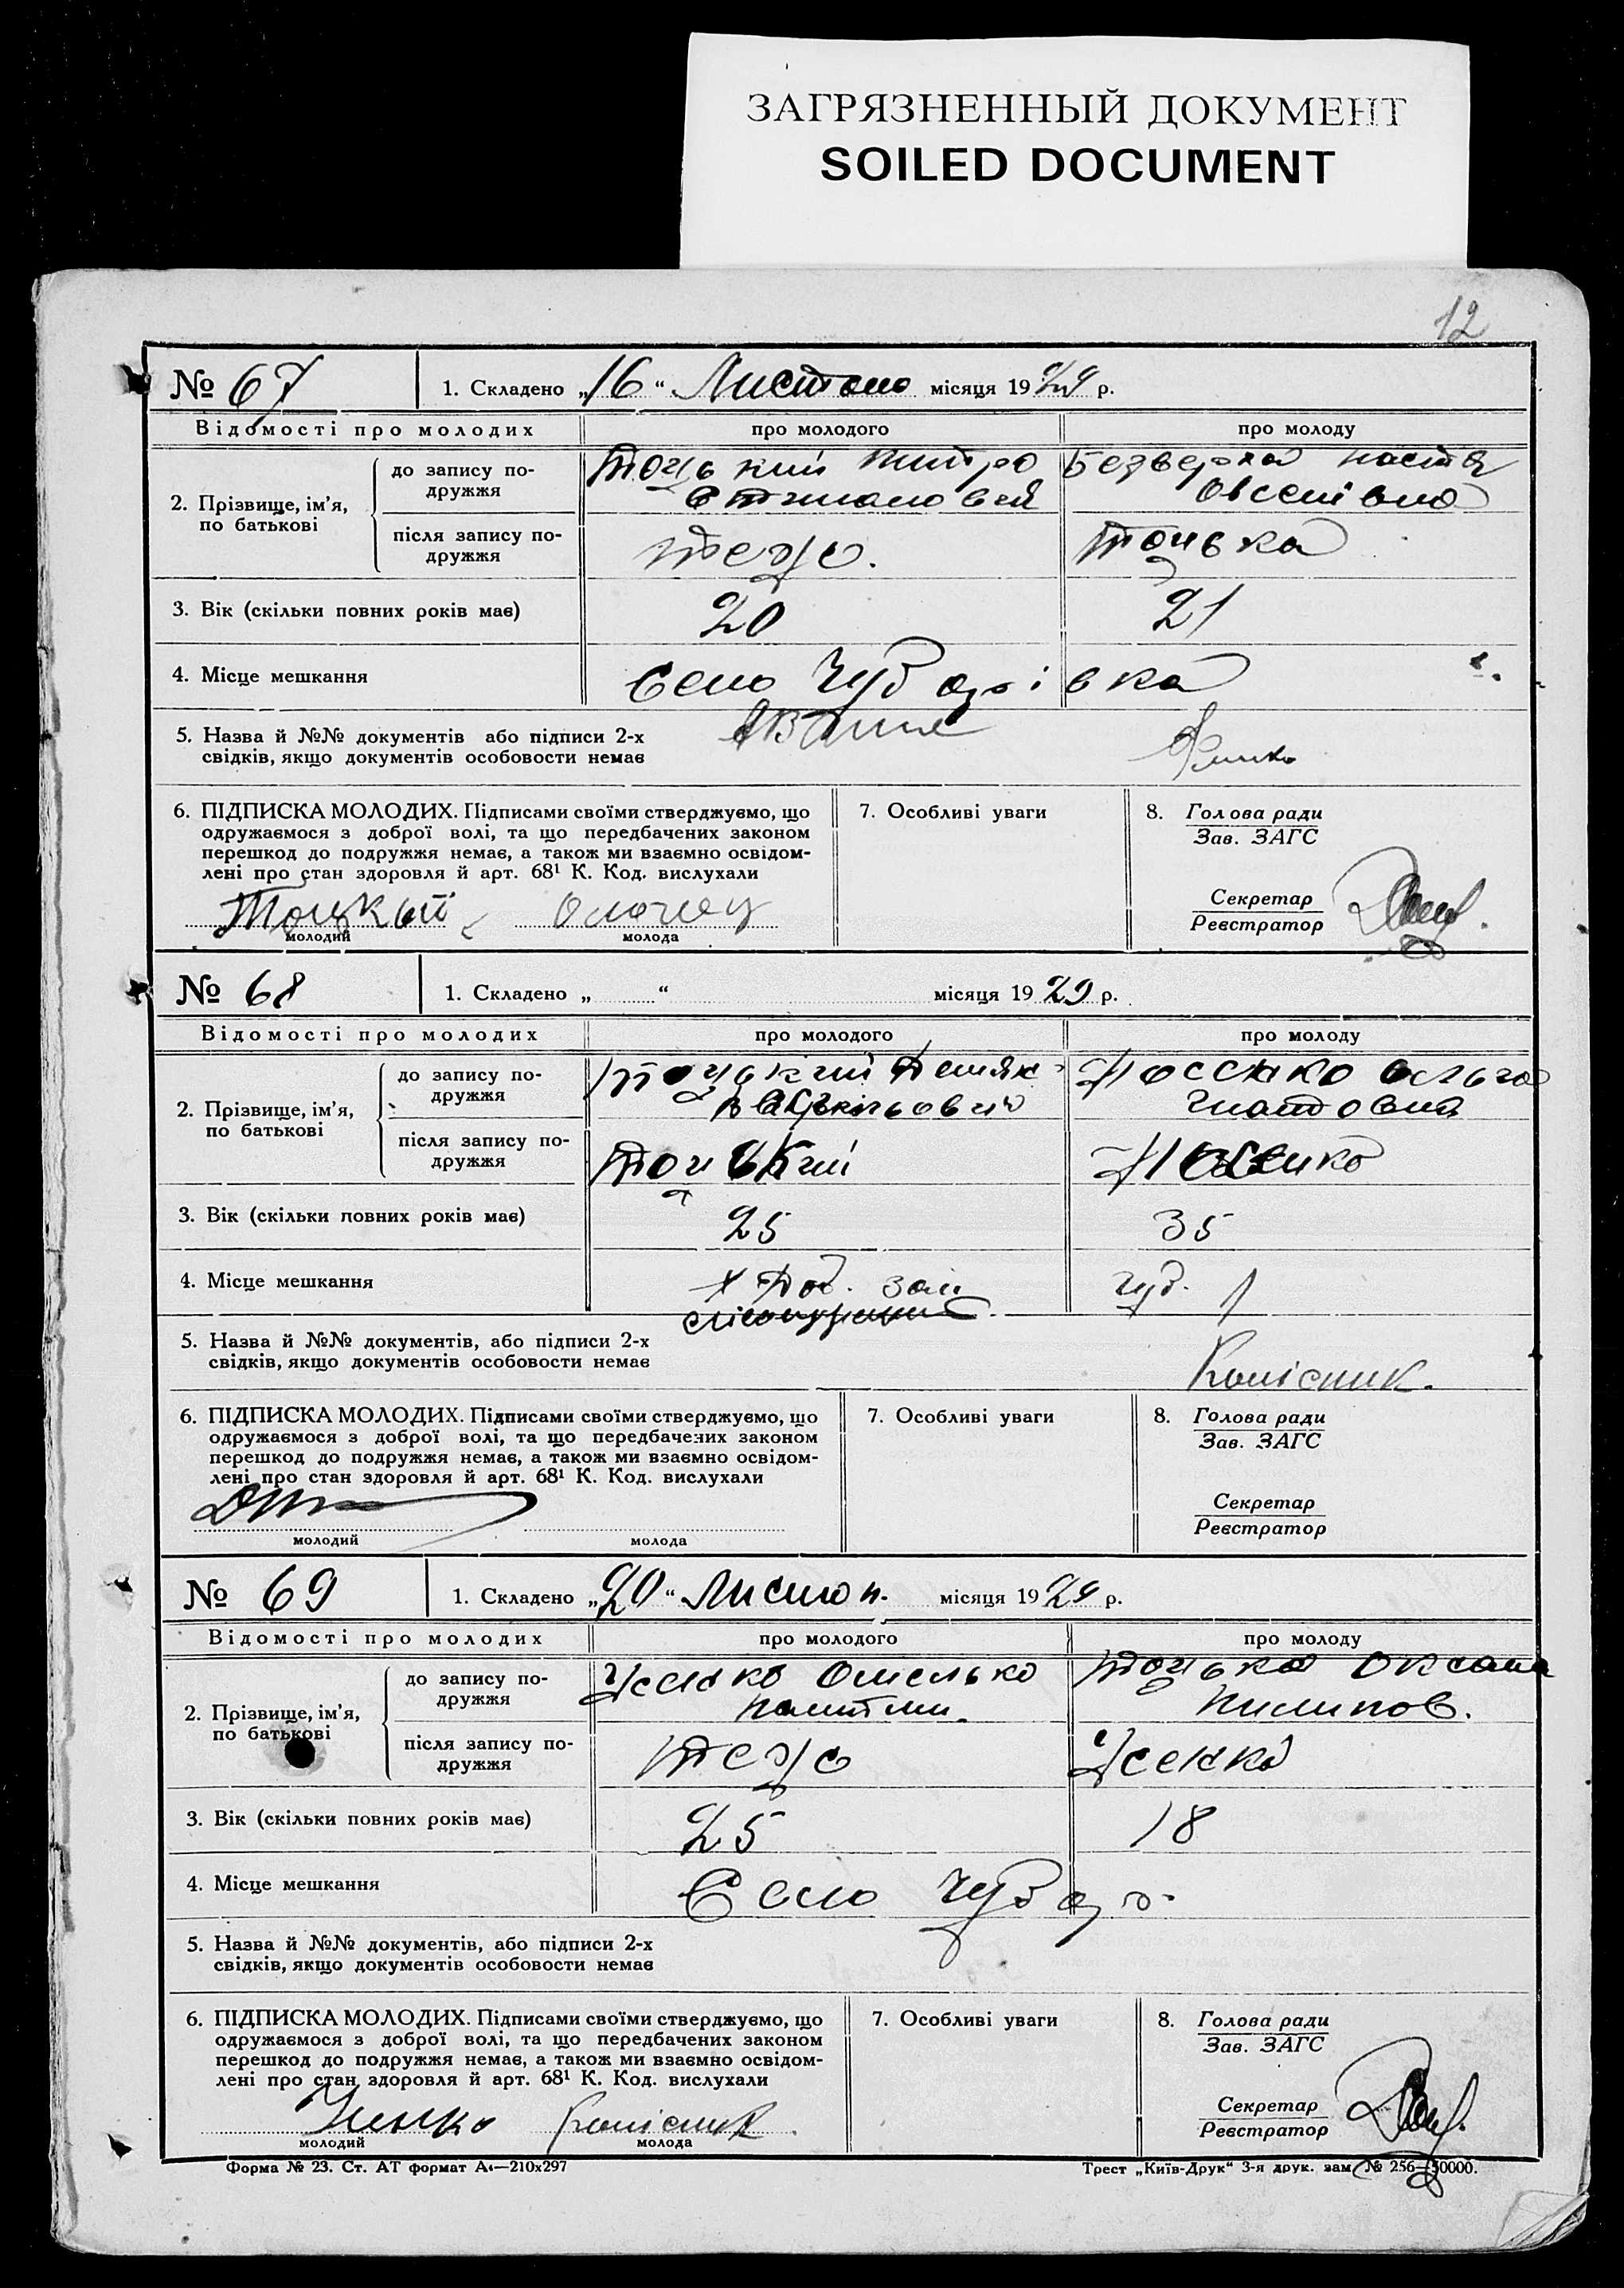 ЗАГРЯЗНЕННЫЙ ДОКУМЕНТ
SOILED DOCUMENT
12
№ 67 1. Складено „16“ Листопо місяця 1929 р.
Відомості про молодих про молодого про молоду
2. Прізвище, ім'я, по батькові
до запису по-
дружжя
Тоцький Безверха Настя
Овсеївно
після запису по-
дружжя
теж. Тоцька
3. Вік (скільки повних років має) 20 21
4. Місце мешкання Село Чуб арівка
5. Назва й №№ документів або підписи 2-х
свідків, якщо документів особовости немає
6. ПІДПИСКА МОЛОДИХ. Підписами своїми стверджуємо, що
одружаємося з доброї волі, та що передбачених законом
перешкод до подружжя немає, а також ми взаємно освідом-
лені про стан здоровля й арт. 68¹ К. Код. вислухали
Тоцкий
молодий молода
7. Особливі уваги
8. Голова ради
Зав. ЗАГС
Секретар
Реєстратор
№ 68 1. Складено „ “ місяця 1929 р.
Відомості про молодих про молодого про молоду
2. Прізвище, ім'я, по батькові
до запису по-
дружжя
Тоцький Носенко Ольга
Гнатовна
після запису по-
дружжя
Тоцький Носенко
3. Вік (скільки повних років має) 25 35
4. Місце мешкання чуб.
5. Назва й №№ документів, або підписи 2-х
свідків, якщо документів особовости немає
Колісник.
6. ПІДПИСКА МОЛОДИХ. Підписами своїми стверджуємо, що
одружаємося з доброї волі, та що передбачених законом
перешкод до подружжя немає, а також ми взаємно освідом-
лені про стан здоровля й арт. 68¹ К. Код. вислухали
молодий молода
7. Особливі уваги
8. Голова ради
Зав. ЗАГС
Секретар
Реєстратор
№ 69 1. Складено „20“ Листоп. місяця 1929 р.
Відомості про молодих про молодого про молоду
2. Прізвище, ім'я, по батькові
до запису по-
дружжя
Усенко Омелько Тоцька Оксана
Пилипов.
після запису по-
дружжя
теж Усенко
3. Вік (скільки повних років має) 25 18
4. Місце мешкання Село Чубар
5. Назва й №№ документів, або підписи 2-х
свідків, якщо документів особовости немає
6. ПІДПИСКА МОЛОДИХ. Підписами своїми стверджуємо, що
одружаємося з доброї волі, та що передбачених законом
перешкод до подружжя немає, а також ми взаємно освідом-
лені про стан здоровля й арт. 68¹ К. Код. вислухали
Колісник
молодий молода
7. Особливі уваги
8. Голова ради
Зав. ЗАГС
Секретар
Реєстратор
Форма № 23. Ст. АТ формат А4—210х297 Трест „Київ-Друк“ 3-я друк. зам. № 256—50000.